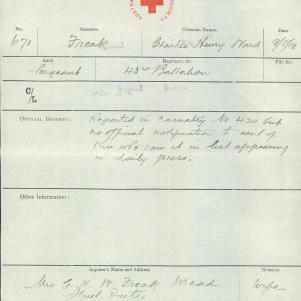 No. Surname. Christian Names. Date.
671 Freak Charles Henry Ward
Rank Regiment, &c. File No.
Sergeant 43rd Battalion
C/L
OFFICIAL REPORTS: Reported in casualty list 420 but
no official notification to next of
kin who saw it in list appearing
in daily press.
Other Information:
Inquirer's Name and Address. Relation.
Mrs C. H. W. Freak Mead Wife
Street Exeter